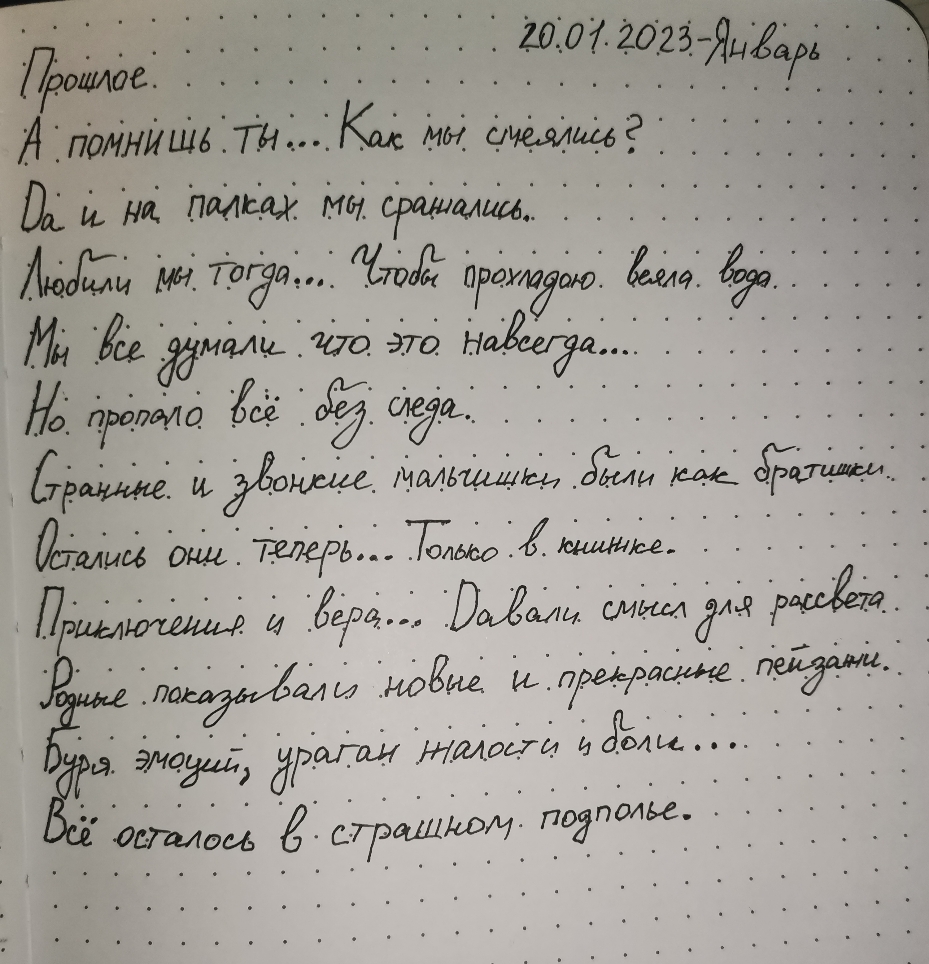 20.01.2023-Январь
Прошлое.
А помнишь ты... Как мы смеялись?
Да и на палках мы сражались.
Любили мы тогда... Чтобы прохладою веяла вода.
Мы все думали что это навсегда...
Но пропало всё без следа.
Странные и звонкие мальчишки были как братишки.
Остались они теперь... Только в книжке.
Приключения и вера... Давали смысл для рассвета.
Родные показывали новые и прекрасные пейзажи.
Буря эмоций, ураган жалости и боли...
Всё осталось в страшном подполье.